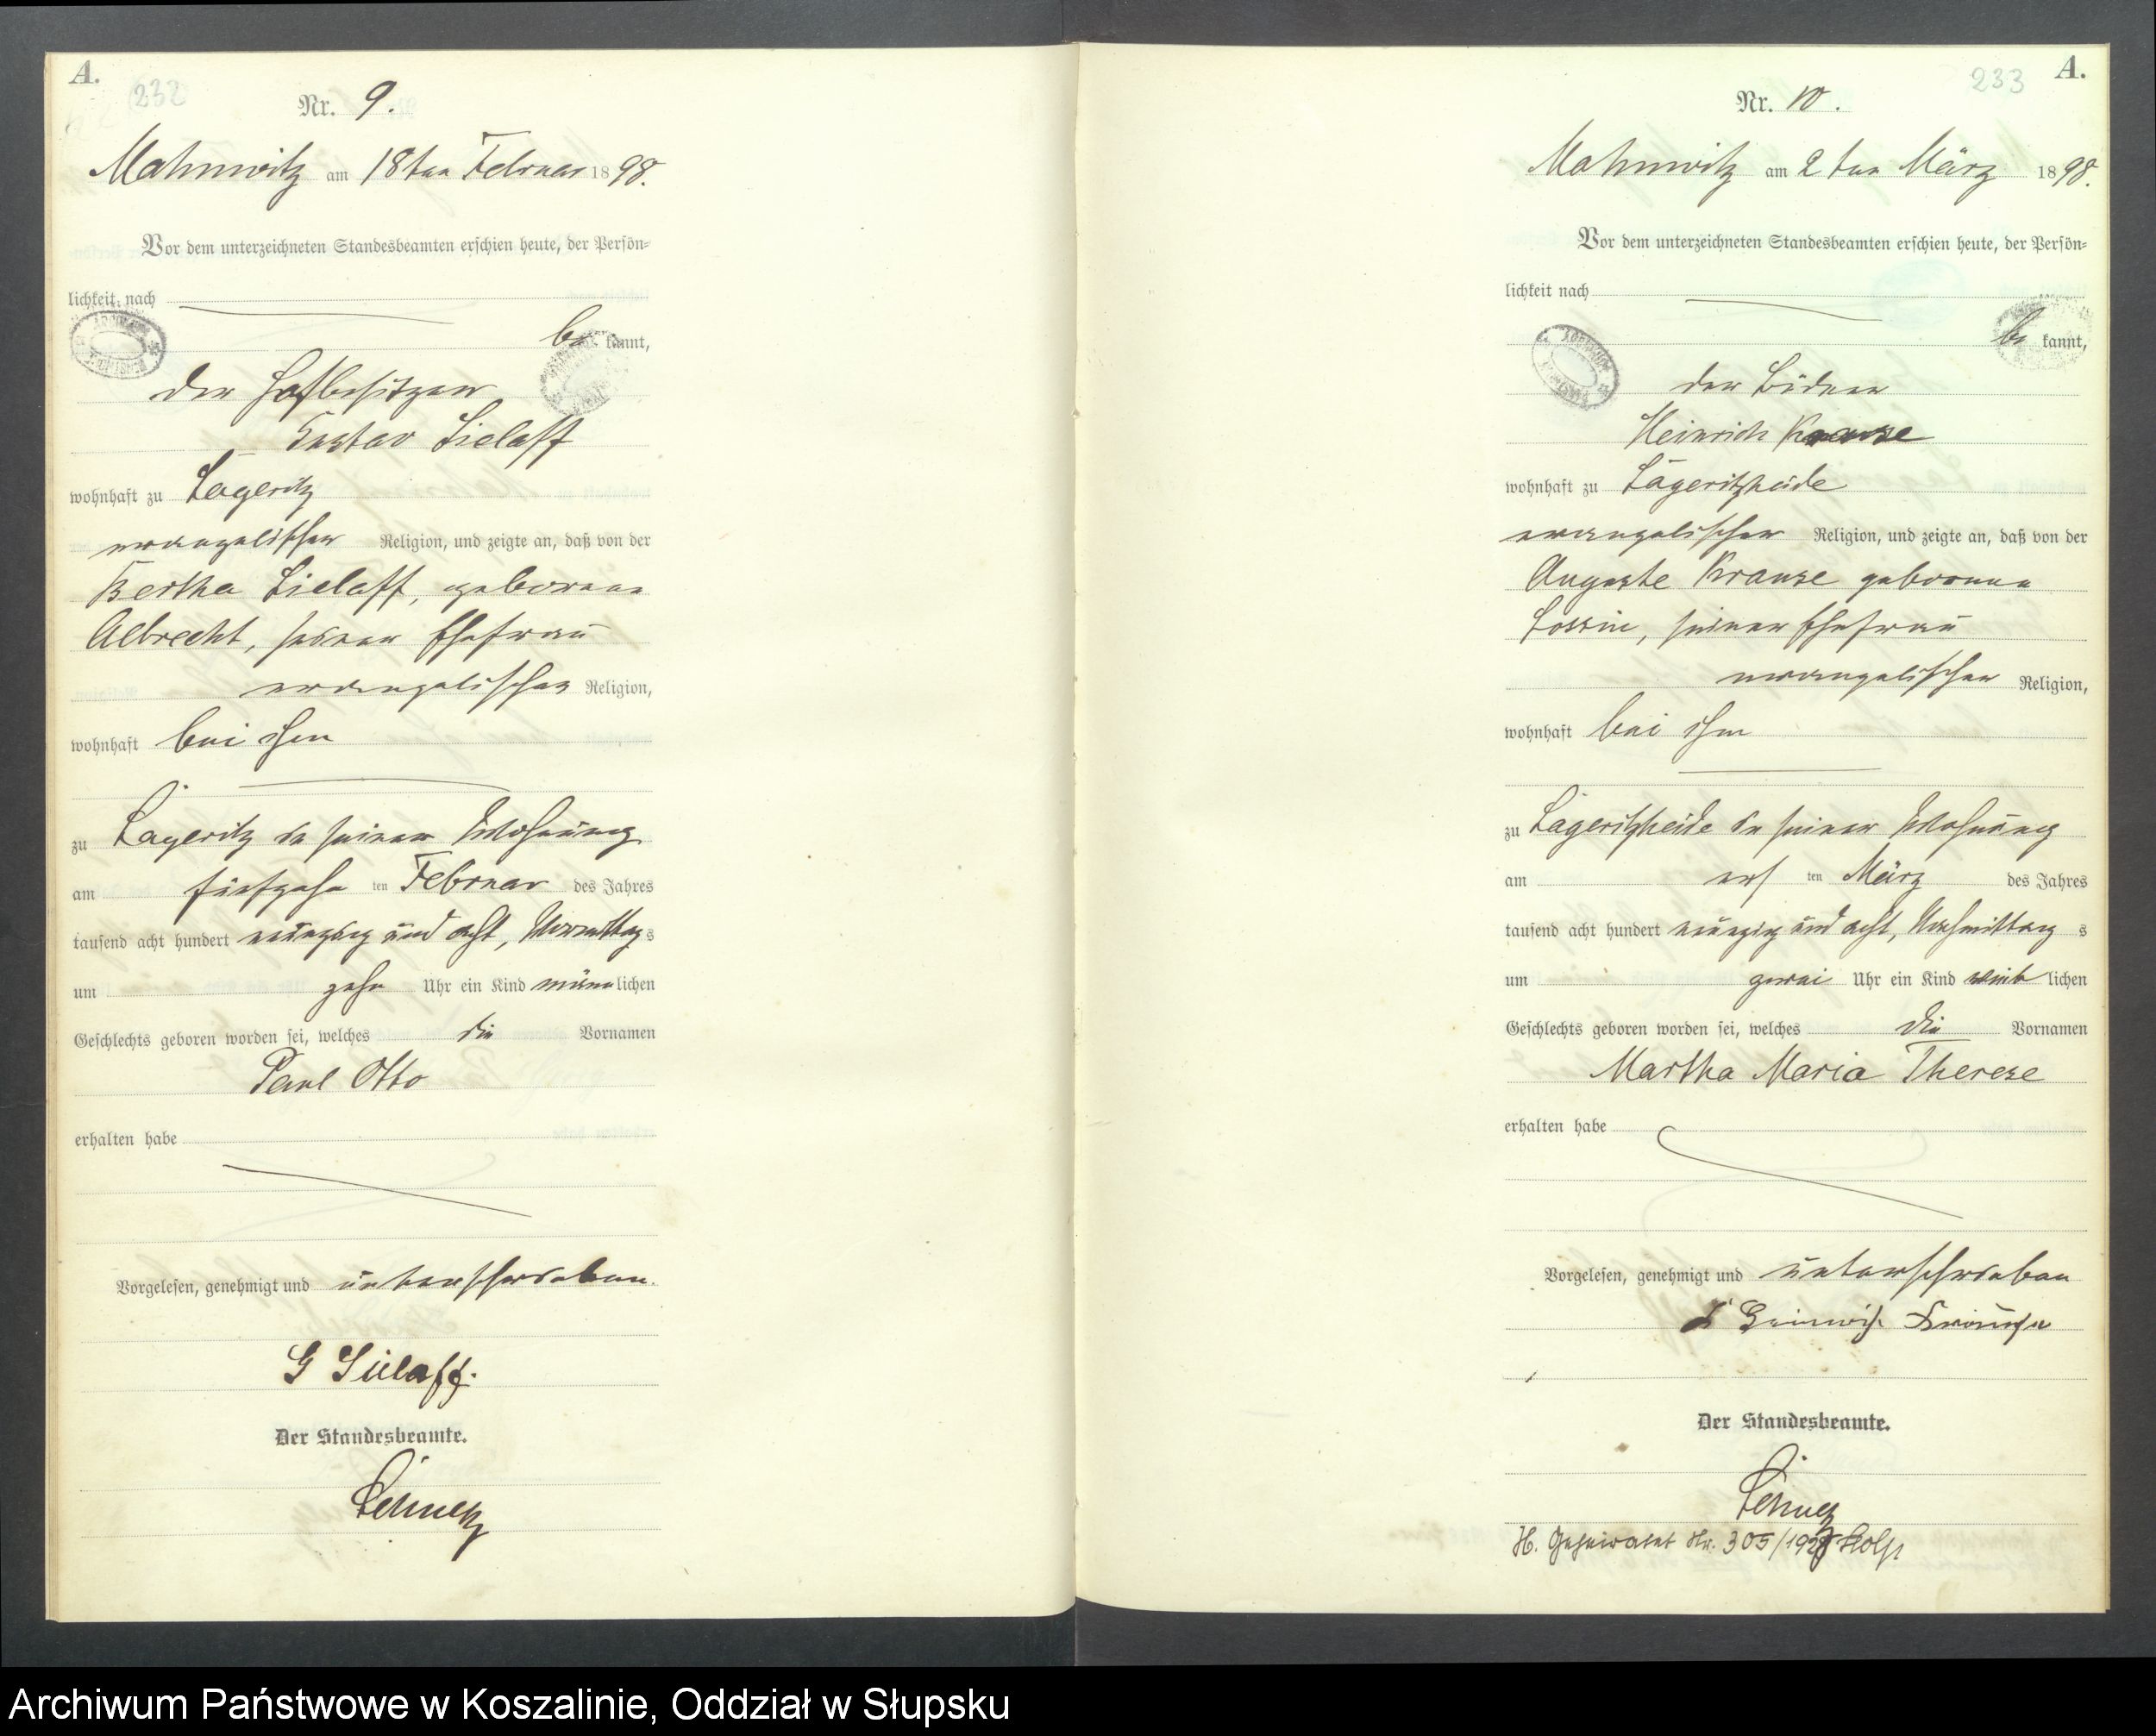 A.
232
Nr. 9.
Mahnwitz am 18ten Februar 1898.
Vor dem unterzeichneten Standesbeamten erschien heute, der Persön-
lichkeit nach
be kannt,
der Hofbesitzer
Gustav Sielaff
wohnhaft zu Lageritz
evangelischer Religion, und zeigte an, daß von der
Bertha Sielaff, geborene
Albrecht, seiner Ehefrau
evangelischer Religion,
wohnhaft bei ihm
zu Lageritz in seiner Wohnung
am fünfzehn ten Februar des Jahres
tausend acht hundert neunzig und acht, Vormittag s
um zehn Uhr ein Kind männ lichen
Geschlechts geboren worden sei, welches die Vornamen
Paul Otto
erhalten habe
Vorgelesen, genehmigt und unterschrieben.
G Sielaff.
Der Standesbeamte.
A.
233
Nr. 10.
Mahnwitz am 2ten März 1898.
Vor dem unterzeichneten Standesbeamten erschien heute, der Persön-
lichkeit nach
be kannt,
der Büdner
Heinrich Krause
wohnhaft zu Lageritzheide
evangelischer Religion, und zeigte an, daß von der
Auguste Krause geborene
Lossin, seiner Ehefrau
evangelischer Religion,
wohnhaft bei ihm
zu Lageritzheide in seiner Wohnung
am ers ten März des Jahres
tausend acht hundert neunzig und acht, Nachmittag s
um zwei Uhr ein Kind weib lichen
Geschlechts geboren worden sei, welches die Vornamen
Martha Maria Therese
erhalten habe
Vorgelesen, genehmigt und unterschrieben
Heinrich Krause
Der Standesbeamte.
H. Geheiratet Nr. 305/1928 Stolp
Archiwum Państwowe w Koszalinie, Oddział w Słupsku